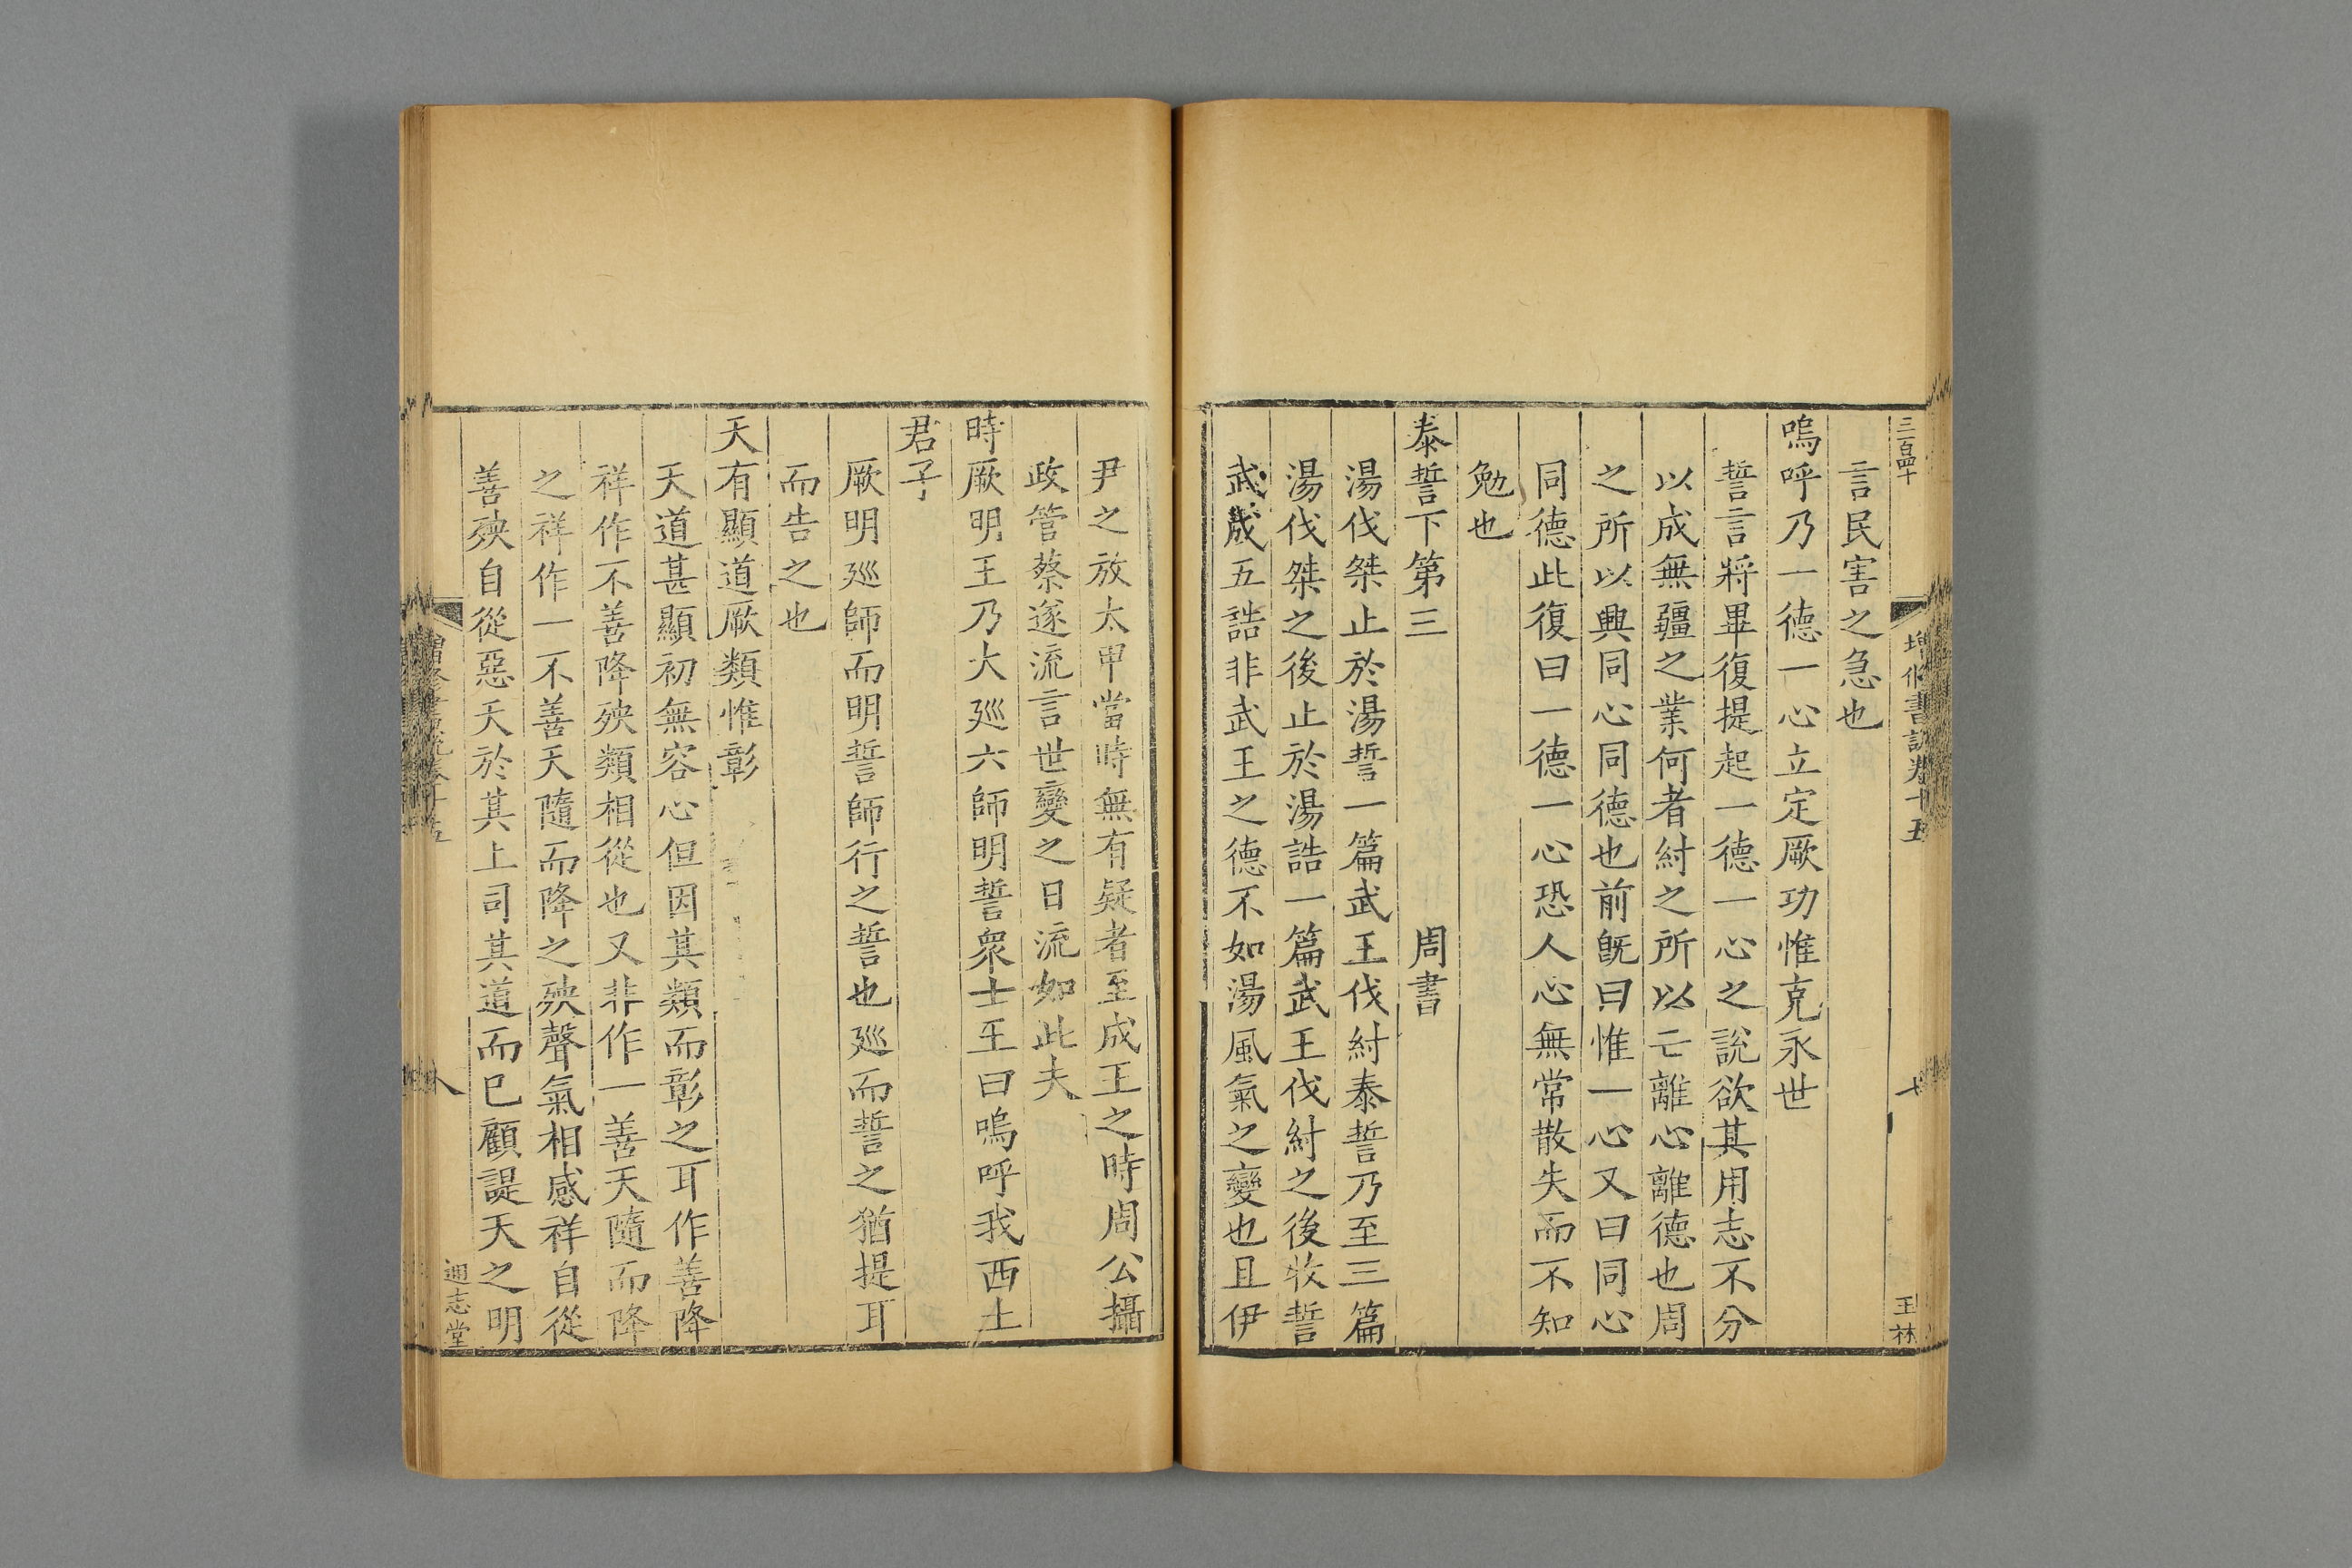 三百四十
增修書說卷十五
七
玉林
言民害之急也
嗚呼乃一德一心立定厥功惟克永世
誓言將畢復提起一德一心之說欲其用志不分
以成無疆之業何者紂之所以亡離心離德也周
之所以興同心同德也前既曰惟一心又曰同心
同德此復曰一德一心恐人心無常散失而不知
勉也
泰誓下第三 周書
湯伐桀止於湯誓一篇武王伐紂泰誓乃至三篇
湯伐桀之後止於湯誥一篇武王伐紂之後牧誓
武成五誥非武王之德不如湯風氣之變也且伊
尹之放太甲當時無有疑者至成王之時周公攝
政管蔡遂流言世變之日流如此夫
時厥明王乃大巡六師明誓衆士王曰嗚呼我西土
君子
厥明巡師而明誓師行之誓也巡而誓之猶提耳
而告之也
天有顯道厥類惟彰
天道甚顯初無容心但因其類而彰之耳作善降
祥作不善降殃類相從也又非作一善天隨而降
之祥作一不善天隨而降之殃聲氣相感祥自從
善殃自從惡天於其上司其道而已顧諟天之明
八
通志堂